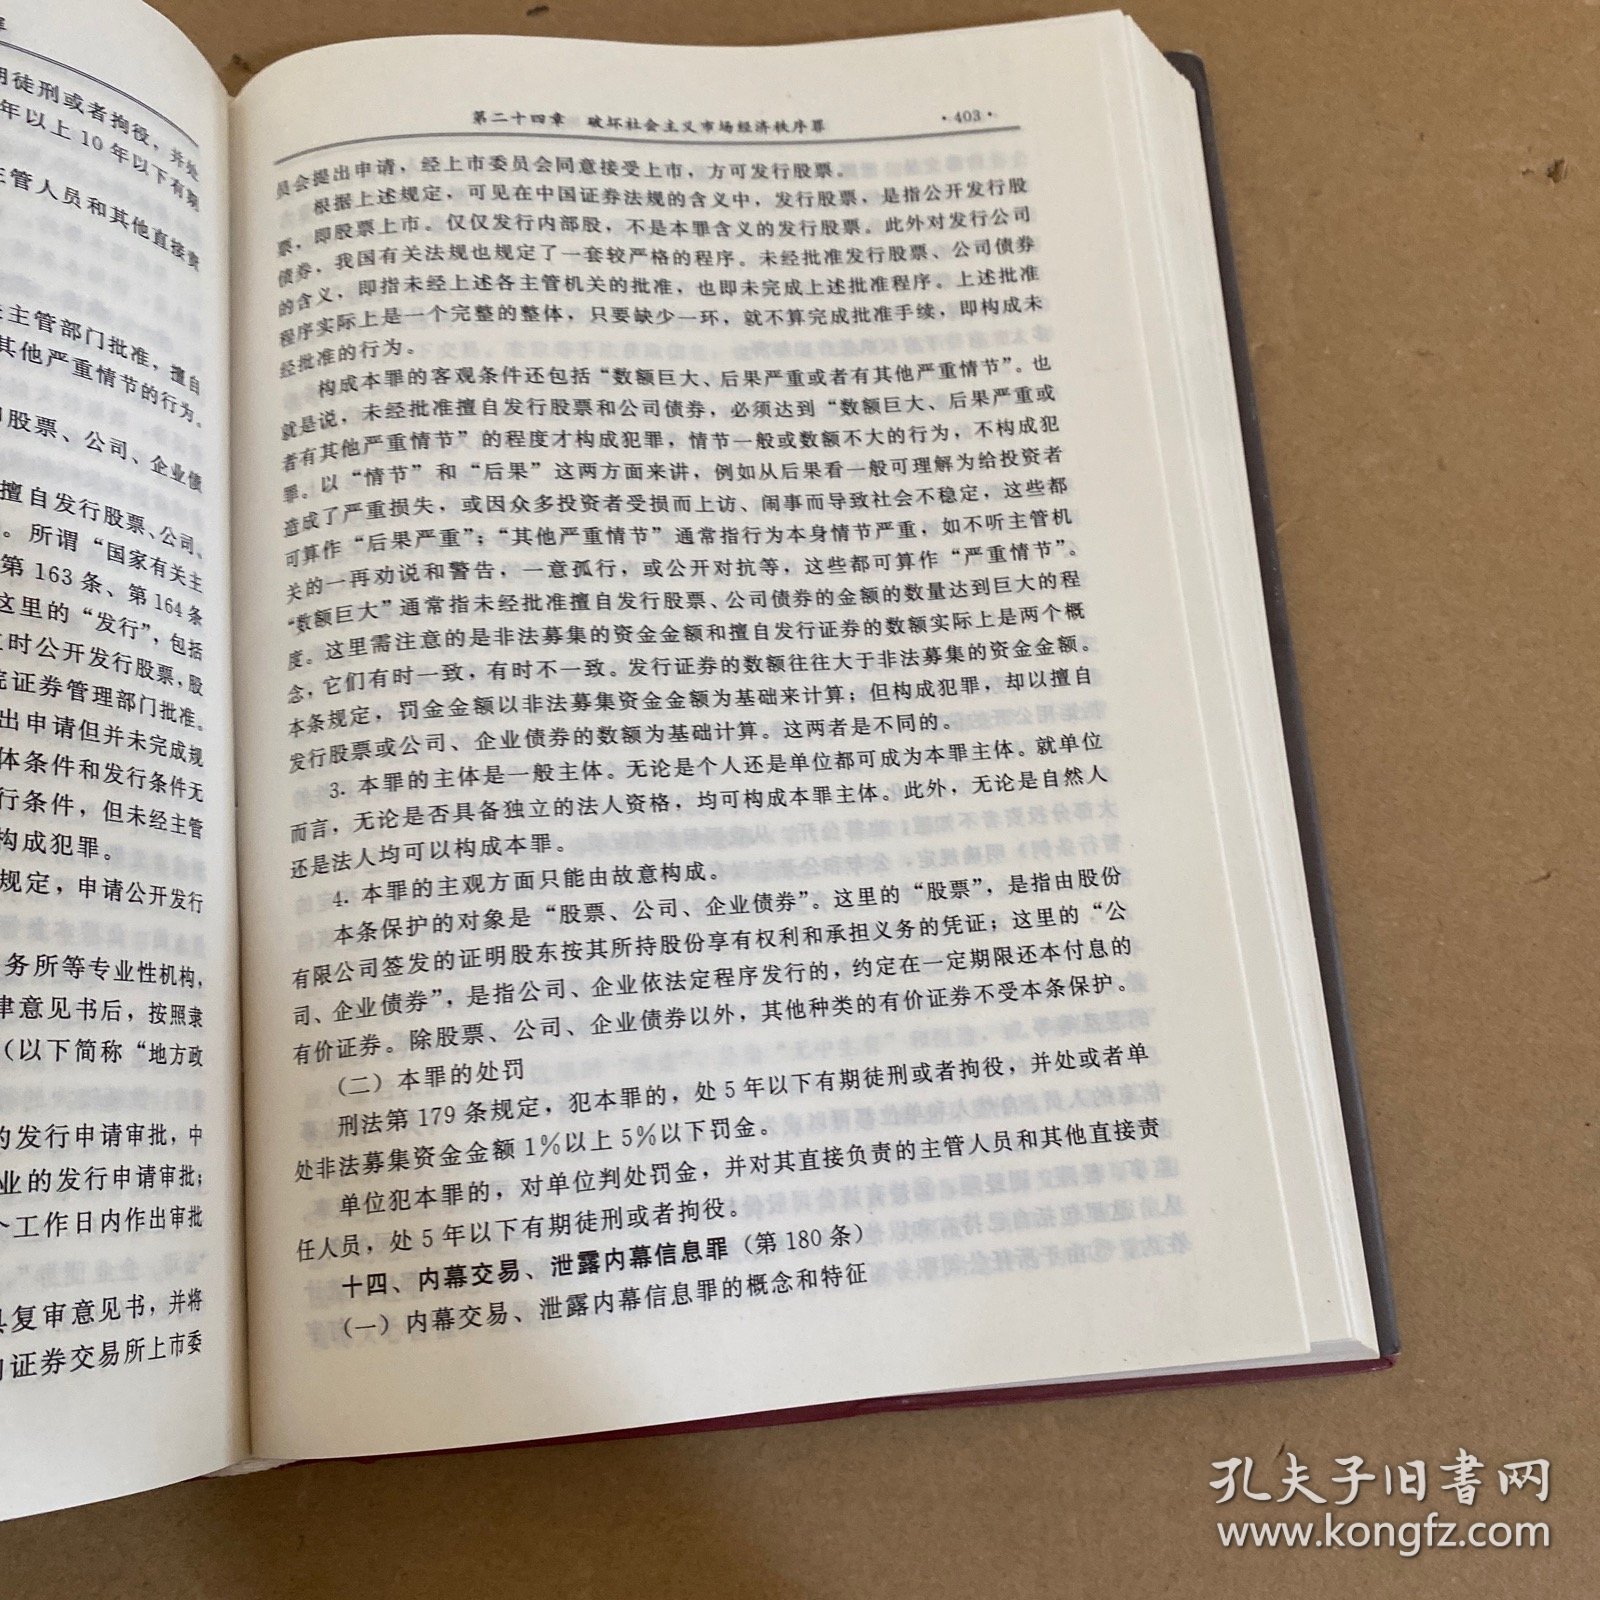 期徒刑或者拘役，并处
年以上10年以下有期
主管人员和其他直接责
主管部门批准，擅自
其他严重情节的行为。
股票、公司、企业债
擅自发行股票、公司、
。所谓“国家有关主
第163条、第164条
这里的“发行”，包括
时公开发行股票，股
院证券管理部门批准。
出申请但并未完成规
体条件和发行条件无
行条件，但未经主管
构成犯罪。
规定，申请公开发行
务所等专业性机构，
律意见书后，按照隶
（以下简称“地方政
的发行申请审批，中
业的发行申请审批；
个工作日内作出审批
具复审意见书，并将
的证券交易所上市委
第二十四章 破坏社会主义市场经济秩序罪
·403·
员会提出申请，经上市委员会同意接受上市，方可发行股票。
根据上述规定，可见在中国证券法规的含义中，发行股票，是指公开发行股
票，即股票上市。仅仅发行内部股，不是本罪含义的发行股票。此外对发行公司
债券，我国有关法规也规定了一套较严格的程序。未经批准发行股票、公司债券
的含义，即指未经上述各主管机关的批准，也即未完成上述批准程序。上述批准
程序实际上是一个完整的整体，只要缺少一环，就不算完成批准手续，即构成未
经批准的行为。
构成本罪的客观条件还包括“数额巨大、后果严重或者有其他严重情节”。也
就是说，未经批准擅自发行股票和公司债券，必须达到“数额巨大、后果严重或
者有其他严重情节”的程度才构成犯罪，情节一般或数额不大的行为，不构成犯
罪。以“情节”和“后果”这两方面来讲，例如从后果看一般可理解为给投资者
造成了严重损失，或因众多投资者受损而上访、闹事而导致社会不稳定，这些都
可算作“后果严重”；“其他严重情节”通常指行为本身情节严重，如不听主管机
关的一再劝说和警告，一意孤行，或公开对抗等，这些都可算作“严重情节”。
“数额巨大”通常指未经批准擅自发行股票、公司债券的金额的数量达到巨大的程
度。这里需注意的是非法募集的资金金额和擅自发行证券的数额实际上是两个概
念，它们有时一致，有时不一致。发行证券的数额往往大于非法募集的资金金额。
本条规定，罚金金额以非法募集资金金额为基础来计算；但构成犯罪，却以擅自
发行股票或公司、企业债券的数额为基础计算。这两者是不同的。
3. 本罪的主体是一般主体。无论是个人还是单位都可成为本罪主体。就单位
而言，无论是否具备独立的法人资格，均可构成本罪主体。此外，无论是自然人
还是法人均可以构成本罪。
4. 本罪的主观方面只能由故意构成。
本条保护的对象是“股票、公司、企业债券”。这里的“股票”，是指由股份
有限公司签发的证明股东按其所持股份享有权利和承担义务的凭证；这里的“公
司、企业债券”，是指公司、企业依法定程序发行的，约定在一定期限还本付息的
有价证券。除股票、公司、企业债券以外，其他种类的有价证券不受本条保护。
（二）本罪的处罚
刑法第179条规定，犯本罪的，处5年以下有期徒刑或者拘役，并处或者单
处非法募集资金金额1%以上5%以下罚金。
单位犯本罪的，对单位判处罚金，并对其直接负责的主管人员和其他直接责
任人员，处5年以下有期徒刑或者拘役。
十四、内幕交易、泄露内幕信息罪（第180条）
（一）内幕交易、泄露内幕信息罪的概念和特征
孔夫子旧书网
www.kongfz.com